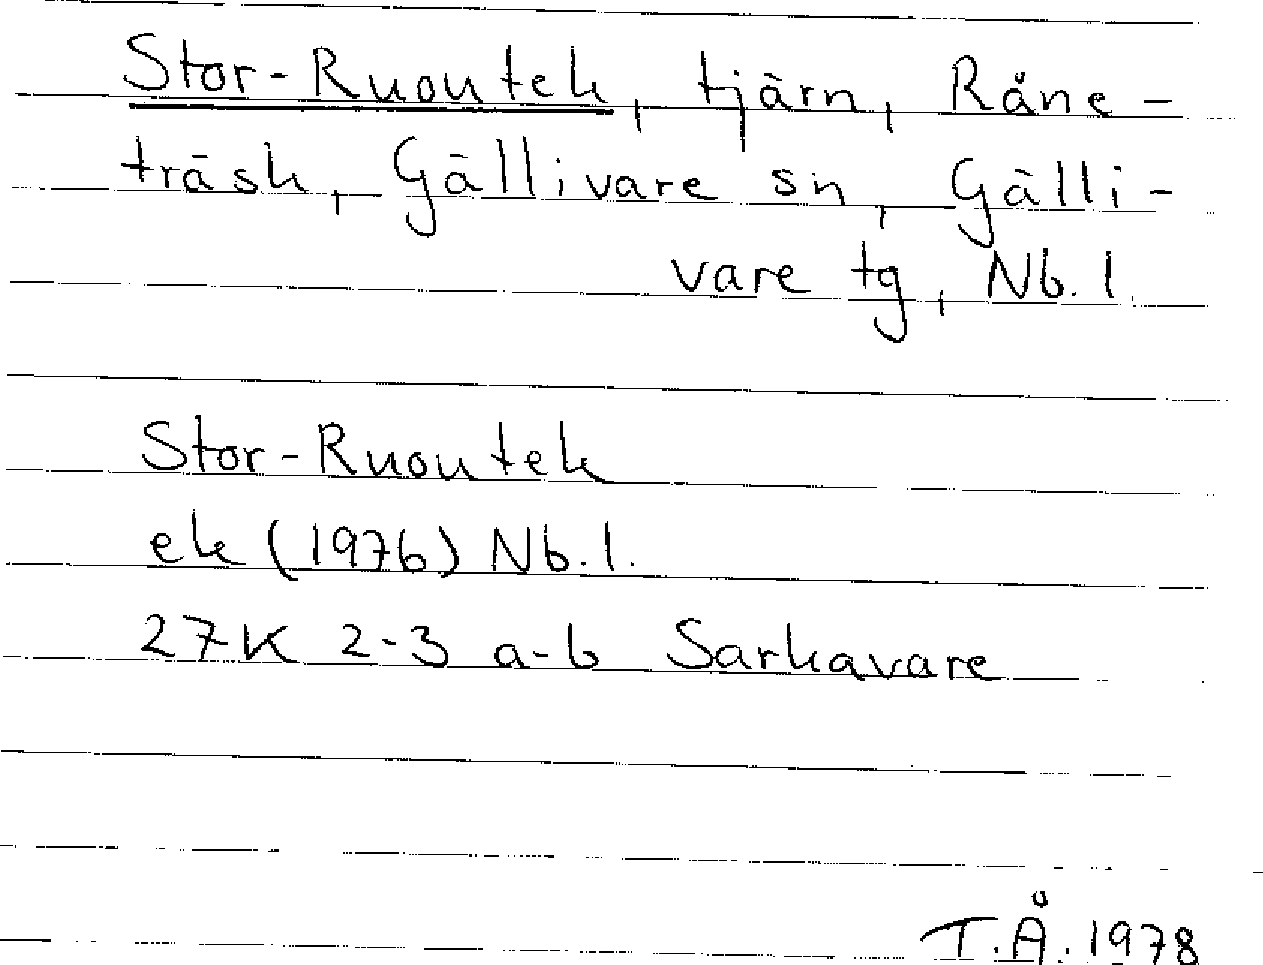 Stor-Ruoutek, tjärn, Råne-
träsk, Gällivare sn, Gälli-
vare tg, Nb. l.
Stor-Ruoutek
ek (1976) Nb. l.
27K 2-3 a-b Sarkavare
T.Å. 1978